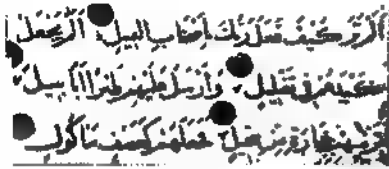 ألم تر كيف فعل ربك بأصحاب الفيل ألم يجعل
كيدهم في تضليل وأرسل عليهم طيرا أبابيل
ترميهم بحجارة من سجيل فجعلهم كعصف مأكول